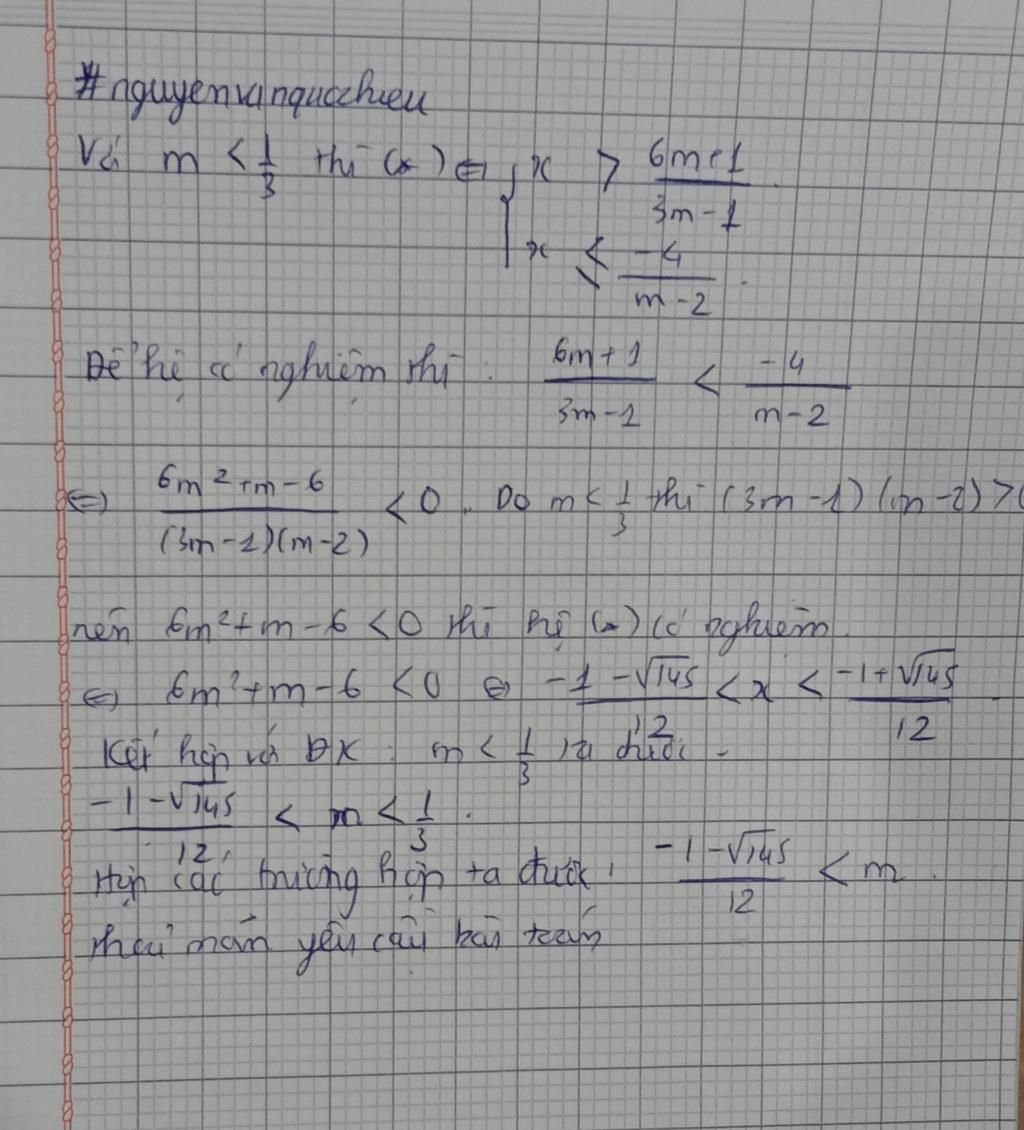 #nguyenvanquocchieu
Với m < 1/3 thì (*) ⇔ { x > (6m+1)/(3m-1)
x ≤ -4/(m-2).
Để hệ có nghiệm thì: (6m+1)/(3m-1) < -4/(m-2)
⇔ (6m²+m-6)/((3m-1)(m-2)) < 0. Do m < 1/3 thì (3m-1)(m-2) > 0
nên 6m²+m-6 < 0 thì hệ (*) có nghiệm.
⇔ 6m²+m-6 < 0 ⇔ (-1-√145)/12 < x < (-1+√145)/12.
Kết hợp với ĐK: m < 1/3 ta được.
(-1-√145)/12 < m < 1/3.
Hợp các trường hợp ta được, (-1-√145)/12 < m.
thoả mãn yêu cầu bài toán